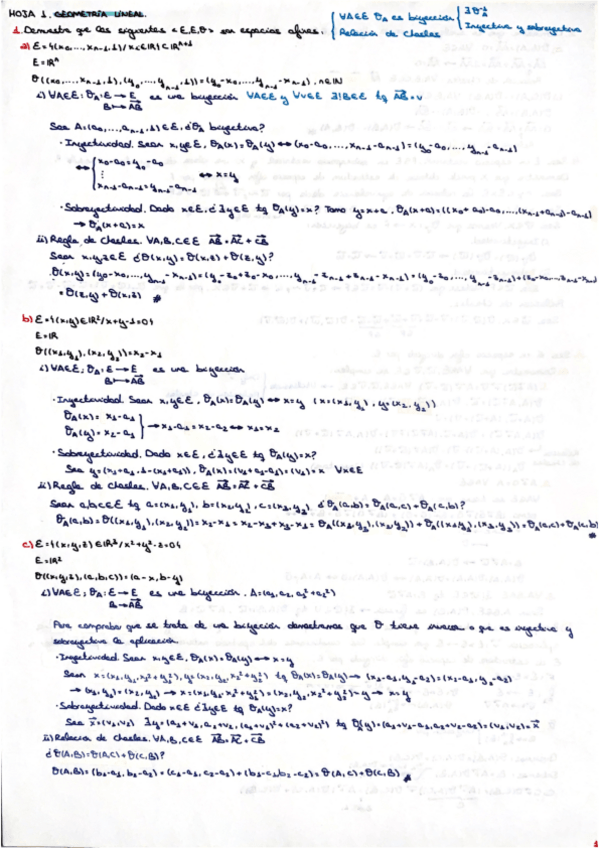 HOJA 1. GEOMETRÍA LINEAL.
1. Demuestra que las siguientes (E,E,θ) son espacios afines. { ∀A∈E θ_A es biyección { ∃θ^-1
Inyectiva y sobreyectiva
Relación de Chasles
a) E={(x₀,...,xₙ₋₁,1)/xᵢ∈ℝ}⊂ℝⁿ⁺¹
E=ℝⁿ
θ((x₀,...,xₙ₋₁,1),(y₀,...,yₙ₋₁,1))=(y₀-x₀,...,yₙ₋₁-xₙ₋₁), n∈ℕ
i) ∀A∈E; θ_A: E → E es una biyección ∀A∈E y ∀v∈E ∃!B∈E tq AB=v
B→AB
Sea A=(a₀,...,aₙ₋₁,1)∈E, ¿θ_A biyectiva?
· Inyectividad. Sean x,y∈E, θ_A(x)=θ_A(y) ↔ (x₀-a₀,...,xₙ₋₁-aₙ₋₁)=(y₀-a₀,...,yₙ₋₁-aₙ₋₁)
↔ { x₀-a₀=y₀-a₀
⋮ ↔ x=y
xₙ₋₁-aₙ₋₁=yₙ₋₁-aₙ₋₁
· Sobreyectividad. Dado x∈E, ¿∃y∈E tq θ_A(y)=x? Tomo y=x+a, θ_A(x+a)=((x₀+a₀)-a₀,...,(xₙ₋₁+aₙ₋₁)-aₙ₋₁)
→ θ_A(x+a)=x
ii) Regla de Chasles. ∀A,B,C∈E AB=AC+CB
Sean x,y,z∈E ¿θ(x,y)=θ(x,z)+θ(z,y)?
θ(x,y)=(y₀-x₀,...,yₙ₋₁-xₙ₋₁)=(y₀-z₀+z₀-x₀,...,yₙ₋₁-zₙ₋₁+zₙ₋₁-xₙ₋₁)=(y₀-z₀,...,yₙ₋₁-zₙ₋₁)+(z₀-x₀,...,zₙ₋₁-xₙ₋₁)
=θ(z,y)+θ(x,z) #
b) E={(x,y)∈ℝ²/x+y-1=0}
E=ℝ
θ((x₁,y₁),(x₂,y₂))=x₂-x₁
i) ∀A∈E; θ_A: E → E es una biyección
B→AB
· Inyectividad. Sean x,y∈E, θ_A(x)=θ_A(y) ↔ x=y (x=(x₁,y₁), y=(x₂,y₂))
θ_A(x)=x₁-a₁
θ_A(y)=x₂-a₁ } → x₁-a₁=x₂-a₁ ↔ x₁=x₂
· Sobreyectividad. Dado x∈E, ¿∃y∈E tq θ_A(y)=x?
ii) Regla de Chasles. ∀A,B,C∈E AB=AC+CB
Sean a,b,c∈E tq a=(x₁,y₁), b=(x₂,y₂), c=(x₃,y₃) ¿θ(a,b)=θ(a,c)+θ(c,b)?
c) E={(x,y,z)∈ℝ³/x²+y²-z=0}
E=ℝ²
θ((x,y,z),(a,b,c))=(a-x,b-y)
i) ∀A∈E; θ_A: E → E es una biyección. A=(a₁,a₂,a₁²+a₂²)
B→AB
Para comprobar que se trata de una biyección demostramos que θ tiene inversa o que es inyectiva y
sobreyectiva la aplicación.
· Inyectividad. Sean x,y∈E, θ_A(x)=θ_A(y) ↔ x=y
Sean x=(x₁,y₁,x₁²+y₁²), y=(x₂,y₂,x₂²+y₂²) tq θ_A(x)=θ_A(y) → (x₁-a₁,y₁-a₂)=(x₂-a₁,y₂-a₂)
→ (x₁,y₁)=(x₂,y₂) → x=(x₁,y₁,x₁²+y₁²)=(x₂,y₂,x₂²+y₂²)=y → x=y
· Sobreyectividad. Dado x∈E ¿∃y∈E tq θ_A(y)=x?
Sea x=(v₁,v₂) ∃y=(a₁+v₁,a₂+v₂,(a₁+v₁)²+(a₂+v₂)²) tq θ_A(y)=(a₁+v₁-a₁,a₂+v₂-a₂)=(v₁,v₂)=x
ii) Relación de Chasles. ∀A,B,C∈E AB=AC+CB
¿θ(A,B)=θ(A,C)+θ(C,B)?
θ(A,B)=(b₁-a₁,b₂-a₂)=(c₁-a₁,c₂-a₂)+(b₁-c₁,b₂-c₂)=θ(A,C)+θ(C,B) #
1